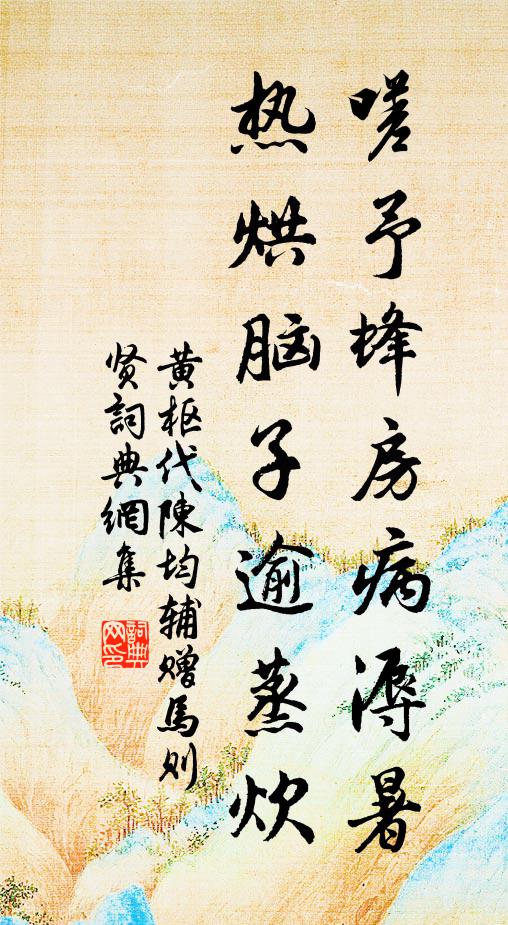 嗟予蜂房病溽暑
热烘脑子逾蒸炊
黄枢代陳均辅贈馬则
贤詞典網集
詞典網印